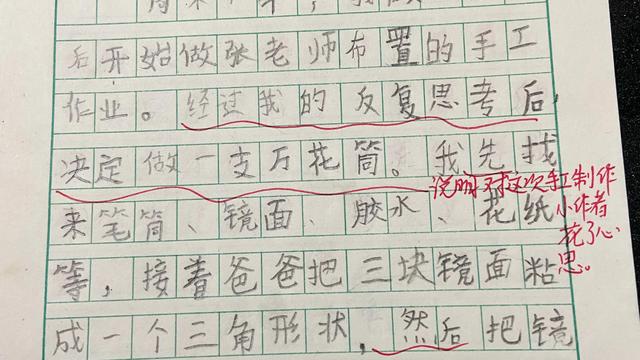 后开始做张老师布置的手工
作业。经过我的反复思考后,
决定做一支万花筒。我先找
说明对这次手工制作
小作者
花了心
思。
来笔筒、镜面、胶水、花纸
等,接着爸爸把三块镜面粘
成一个三角形状,然后把镜